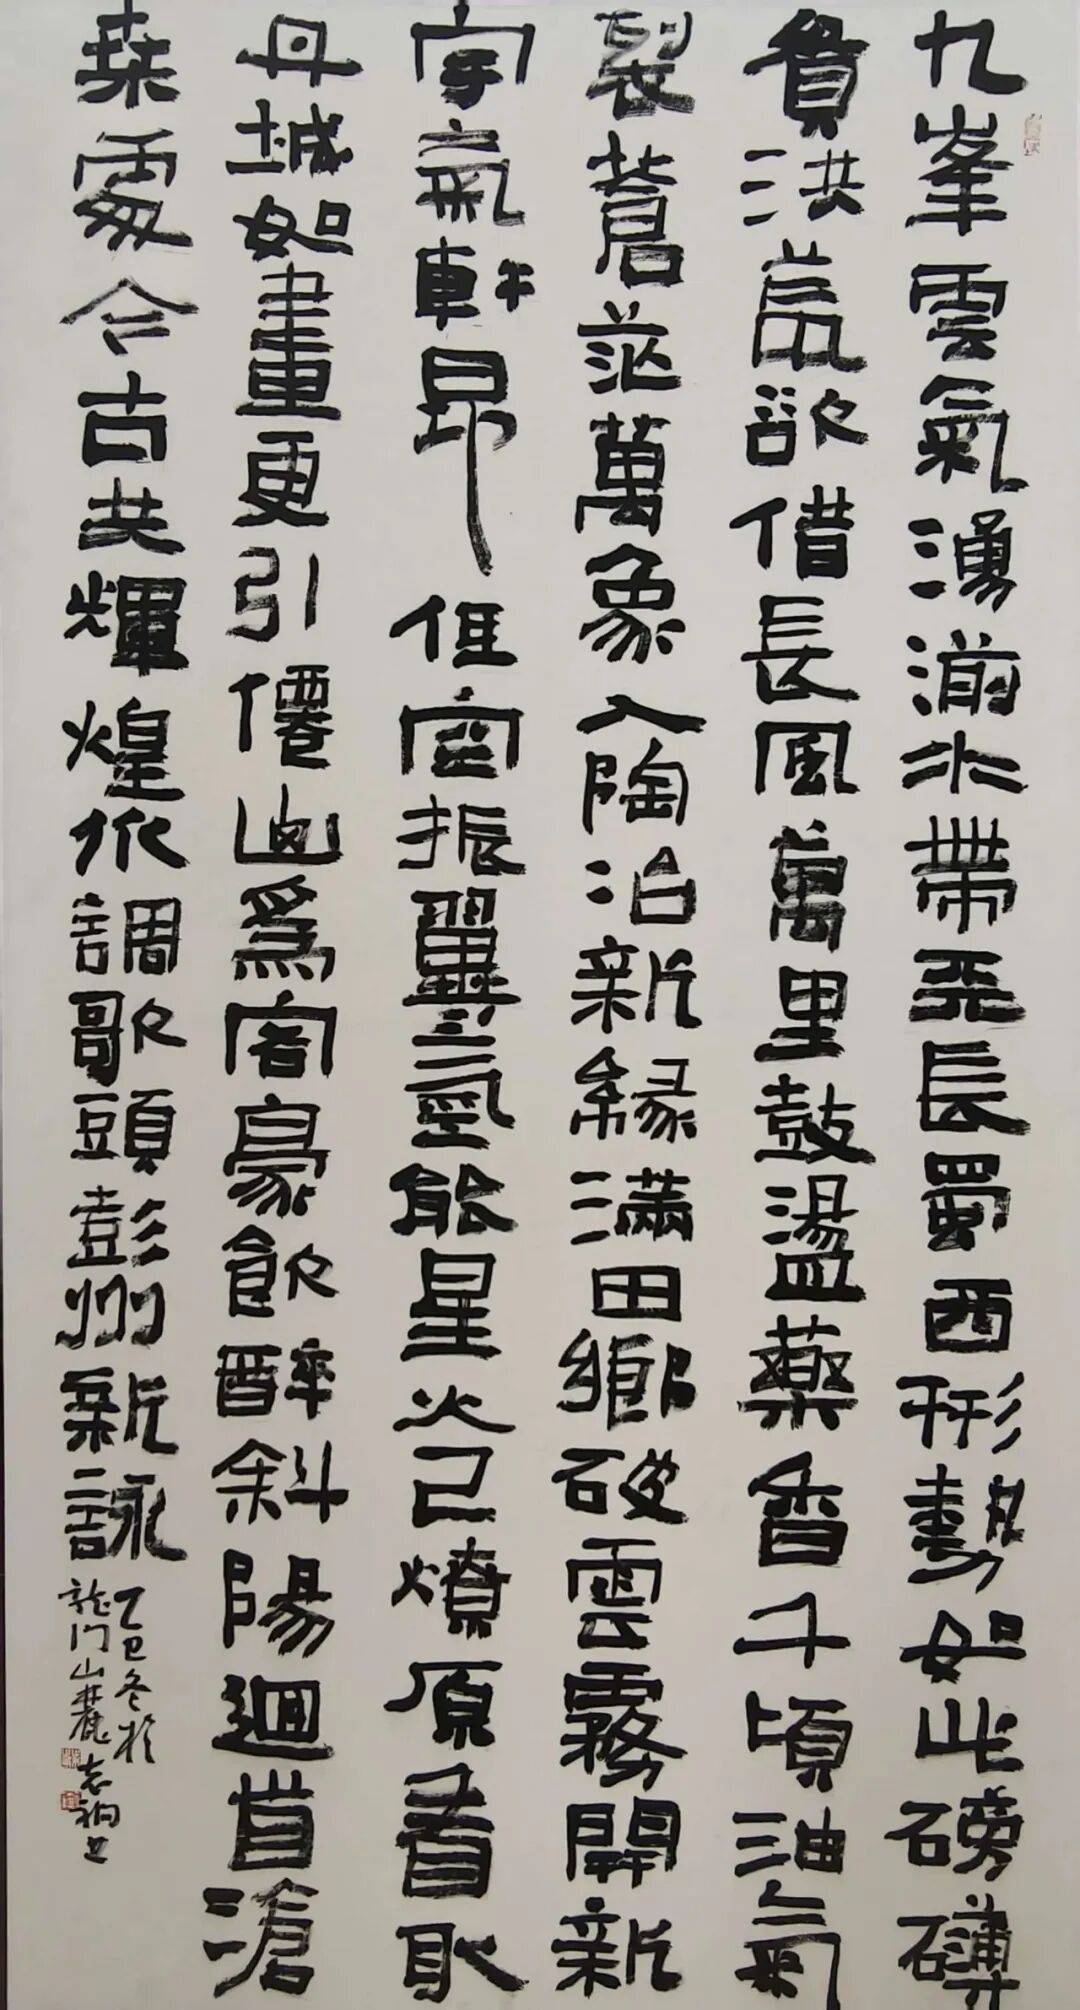 九峯雲氣湧湔水帶長蜀西形勢如此磅礴
負洪荒欲借長風萬里鼓盪藥香千頃油氣
裂蒼茫萬象入陶冶新緑滿田鄉破雲霧開新
宇氣軒昂低空振翼氫能星火已燎原看取
丹城如畫更引僊為客豪飲醉斜陽迴首滄
桒處今古共輝煌水調歌頭彭州新詠
乙巳冬於
龍門山麓志書